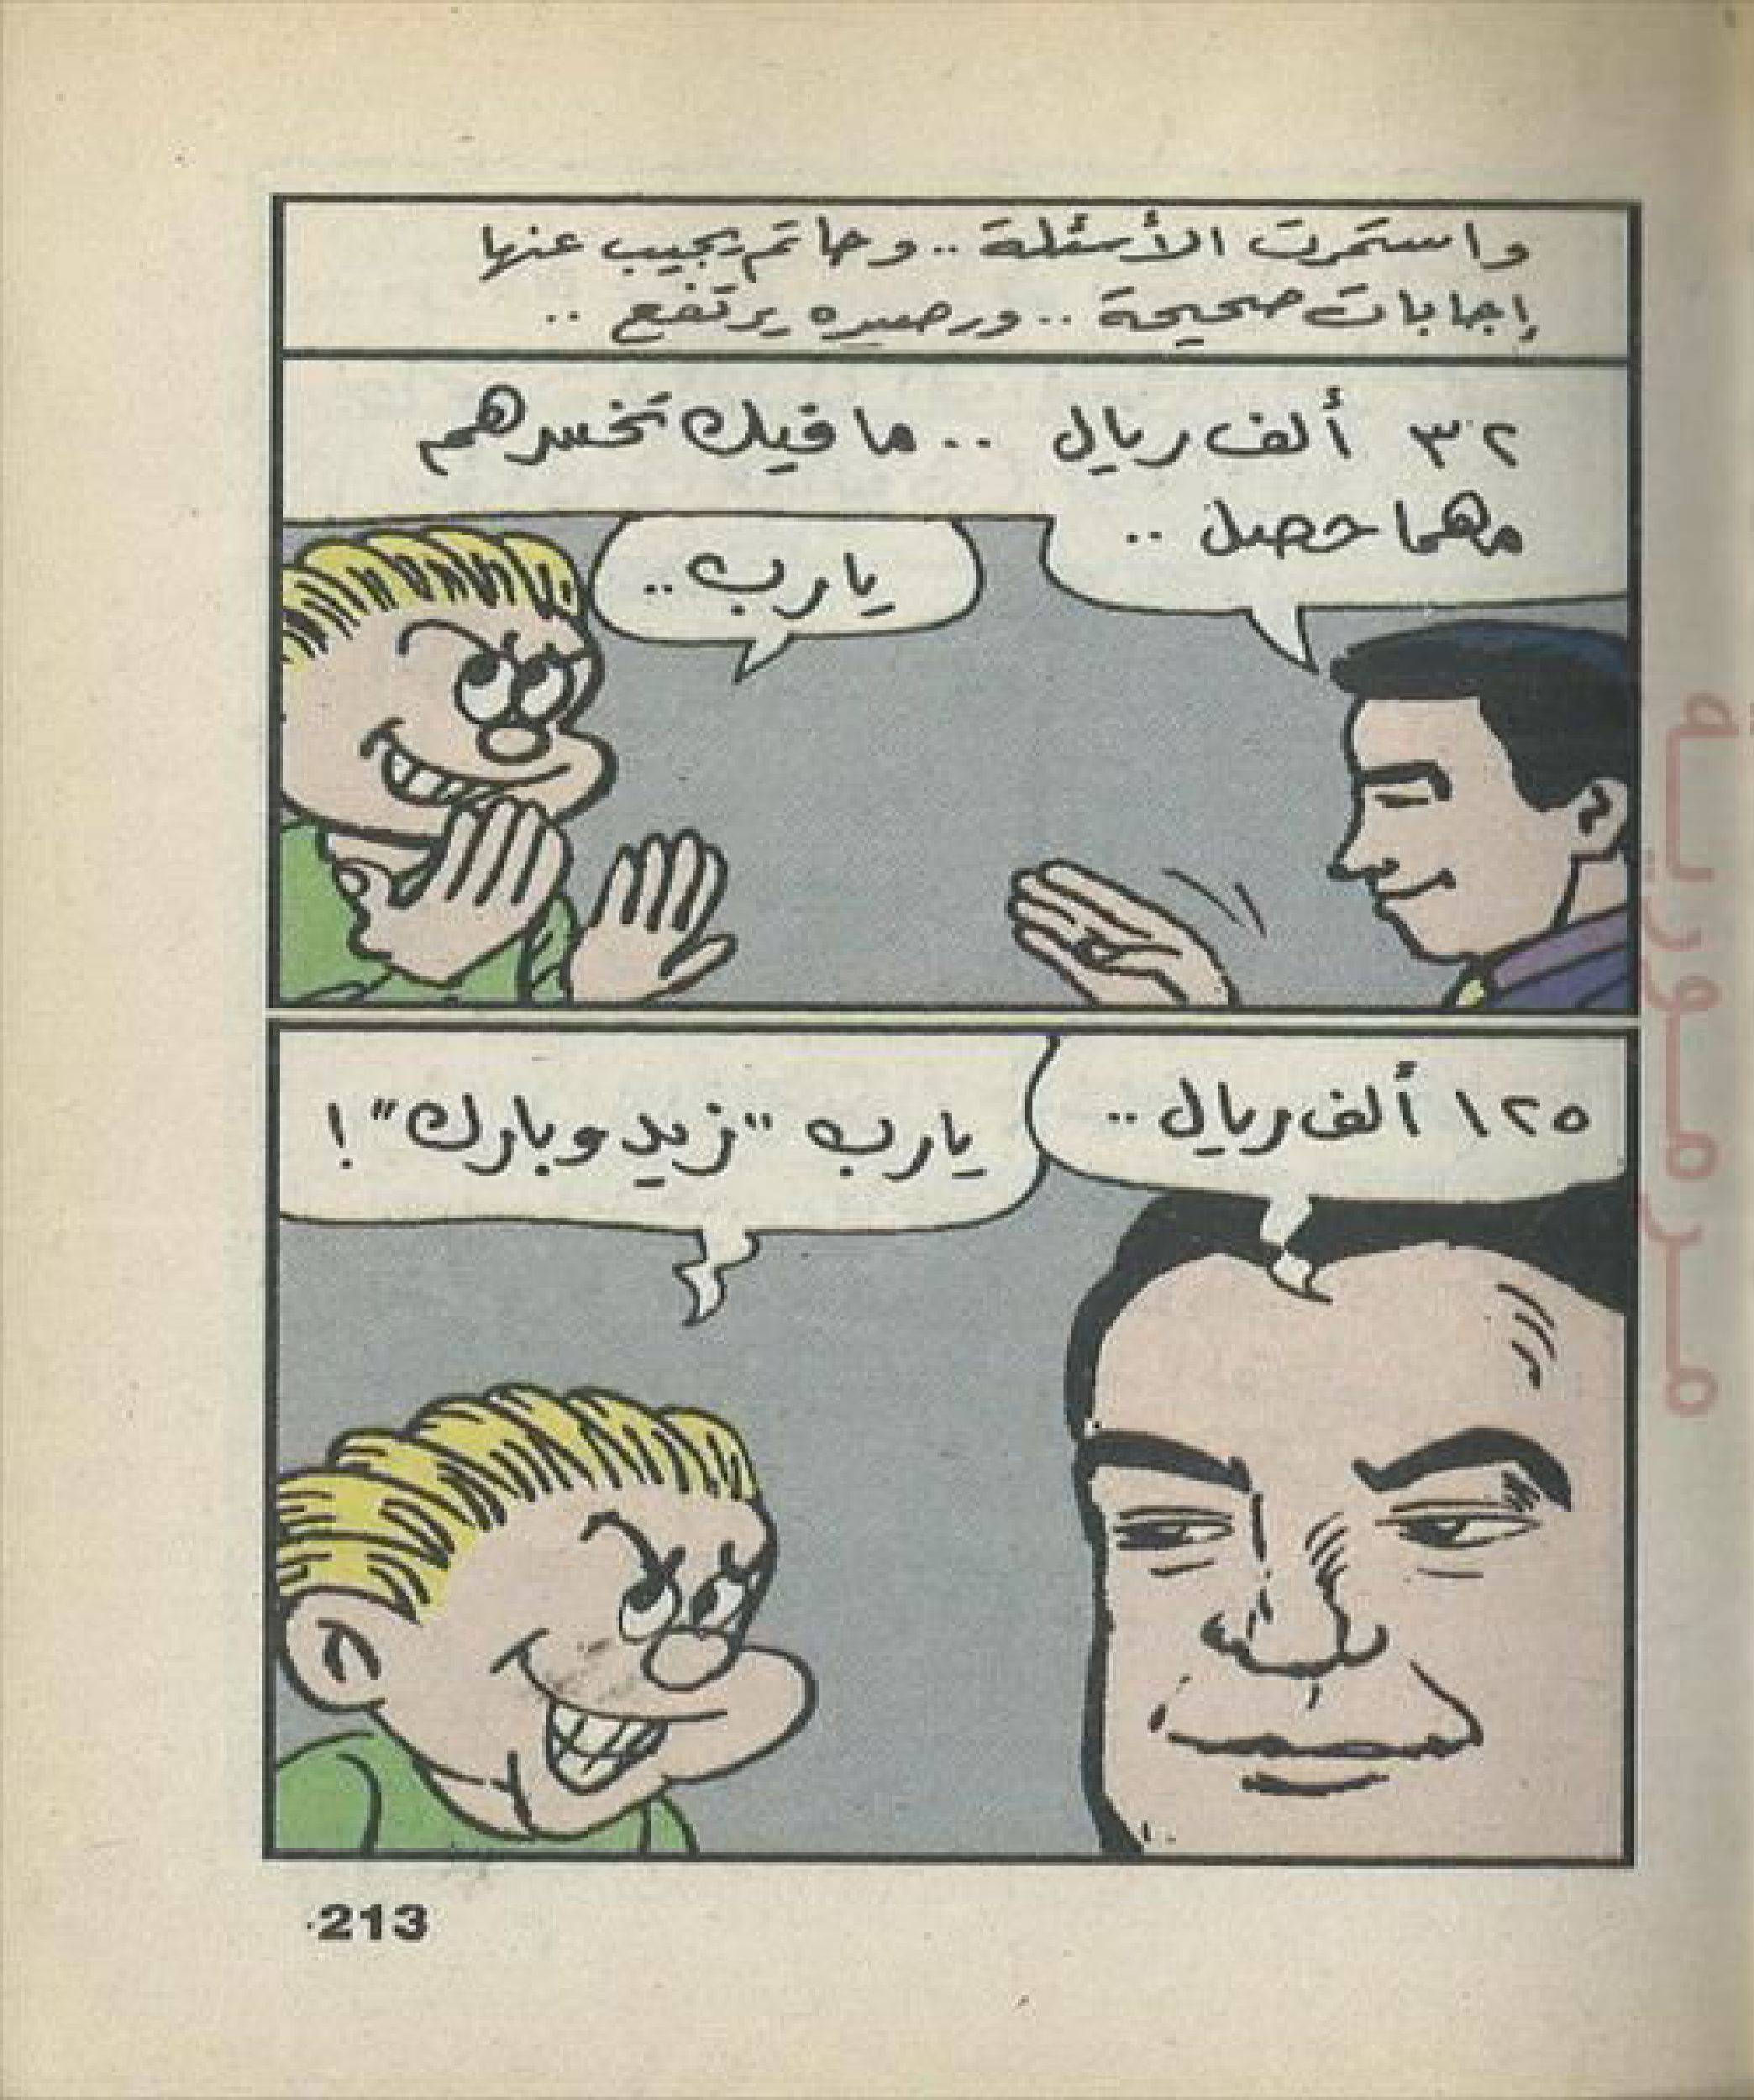 واستمرت الأسئلة .. وحاتم يجيب عنها
إجابات صحيحة .. ورصيده يرتفع ..
٣٢ ألف ريال .. ما فيك تخسرهم
مهما حصل ..
يارب ..
١٢٥ ألف ريال ..
يارب "زيد وبارك" !
213